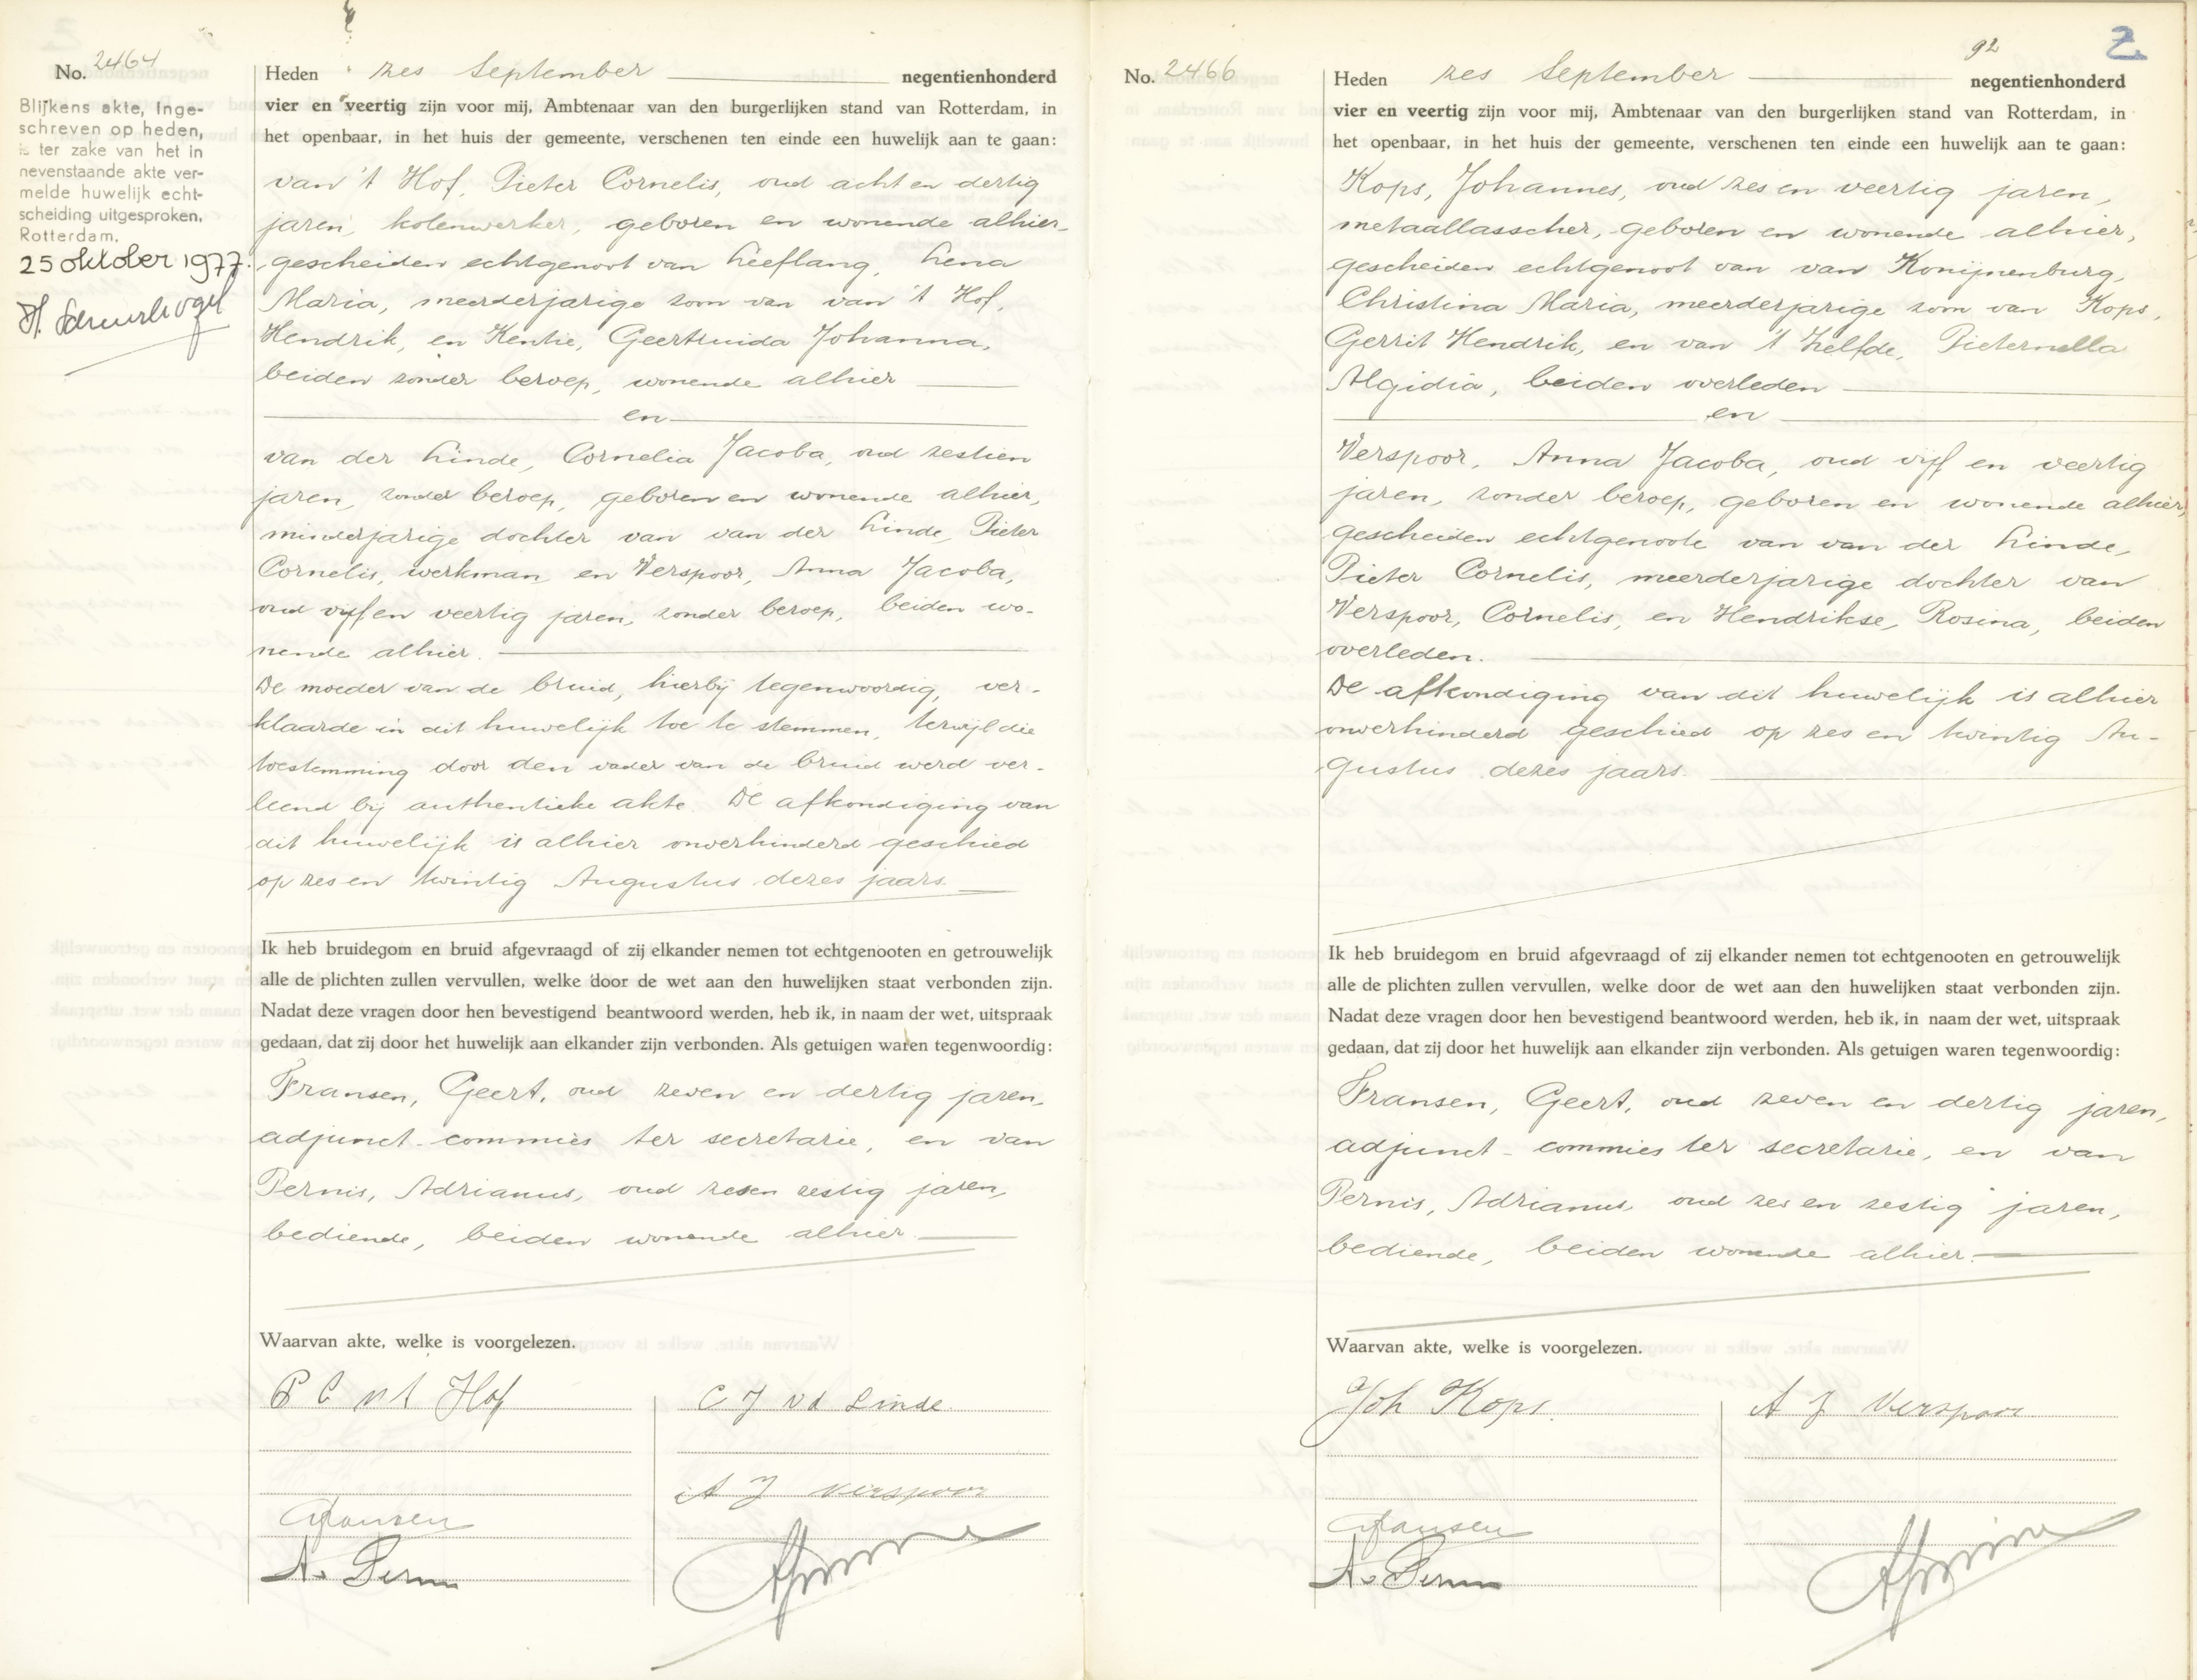 No. 2464
Blijkens akte, Inge-
schreven op heden,
is ter zake van het in
nevenstaande akte ver-
melde huwelijk echt-
scheiding uitgesproken.
Rotterdam,
25 oktober 1977.
Heden zes September negentienhonderd
vier en veertig zijn voor mij, Ambtenaar van den burgerlijken stand van Rotterdam, in
het openbaar, in het huis der gemeente, verschenen ten einde een huwelijk aan te gaan:
van 't Hof, Pieter Cornelis, oud acht en dertig
jaren, kolenwerker, geboren en wonende alhier,
gescheiden echtgenoot van Lieflang, Lena
Maria, meerderjarige zoon van van 't Hof,
Hendrik, en Kentie, Geertruida Johanna,
beiden zonder beroep, wonende alhier
en
van der Linde, Cornelia Jacoba, oud zestien
jaren, zonder beroep, geboren en wonende alhier,
minderjarige dochter van van der Linde, Pieter
Cornelis, werkman, en Verspoor, Anna Jacoba,
oud vijf en veertig jaren, zonder beroep, beiden wo-
nende alhier.
De moeder van de bruid, hierbij tegenwoordig, ver-
klaarde in dit huwelijk toe te stemmen, terwijl die
toestemming door den vader van de bruid werd ver-
leend bij authentieke akte. De afkondiging van
dit huwelijk is alhier onverhinderd geschied
op zes en twintig Augustus dezes jaars.
Ik heb bruidegom en bruid afgevraagd of zij elkander nemen tot echtgenooten en getrouwelijk
alle de plichten zullen vervullen, welke door de wet aan den huwelijken staat verbonden zijn.
Nadat deze vragen door hen bevestigend beantwoord werden, heb ik, in naam der wet, uitspraak
gedaan, dat zij door het huwelijk aan elkander zijn verbonden. Als getuigen waren tegenwoordig:
Fransen, Geert, oud zeven en dertig jaren,
adjunct-commies ter secretarie, en van
Pernis, Adrianus, oud zes en zestig jaren,
bediende, beiden wonende alhier.
Waarvan akte, welke is voorgelezen.
P C v t Hof
C J vd Linde
A J Verspoor
GFransen
A. v Pernis
92
2
No. 2466
Heden zes September negentienhonderd
vier en veertig zijn voor mij, Ambtenaar van den burgerlijken stand van Rotterdam, in
het openbaar, in het huis der gemeente, verschenen ten einde een huwelijk aan te gaan:
Kops, Johannes, oud zes en veertig jaren,
metaallasscher, geboren en wonende alhier,
gescheiden echtgenoot van van Konijnenburg,
Christina Maria, meerderjarige zoon van Kops,
Gerrit Hendrik, en van 't Zelfde, Pieternella
Algidia, beiden overleden
en
Verspoor, Anna Jacoba, oud vijf en veertig
jaren, zonder beroep, geboren en wonende alhier,
gescheiden echtgenoote van van der Linde,
Pieter Cornelis, meerderjarige dochter van
Verspoor, Cornelis, en Hendrikse, Rosina, beiden
overleden.
De afkondiging van dit huwelijk is alhier
onverhinderd geschied op zes en twintig Au-
gustus dezes jaars.
Ik heb bruidegom en bruid afgevraagd of zij elkander nemen tot echtgenooten en getrouwelijk
alle de plichten zullen vervullen, welke door de wet aan den huwelijken staat verbonden zijn.
Nadat deze vragen door hen bevestigend beantwoord werden, heb ik, in naam der wet, uitspraak
gedaan, dat zij door het huwelijk aan elkander zijn verbonden. Als getuigen waren tegenwoordig:
Fransen, Geert, oud zeven en dertig jaren,
adjunct-commies ter secretarie, en van
Pernis, Adrianus, oud zes en zestig jaren,
bediende, beiden wonende alhier.
Waarvan akte, welke is voorgelezen.
Joh Kops.
A J Verspoor
GFransen
A. v Pernis